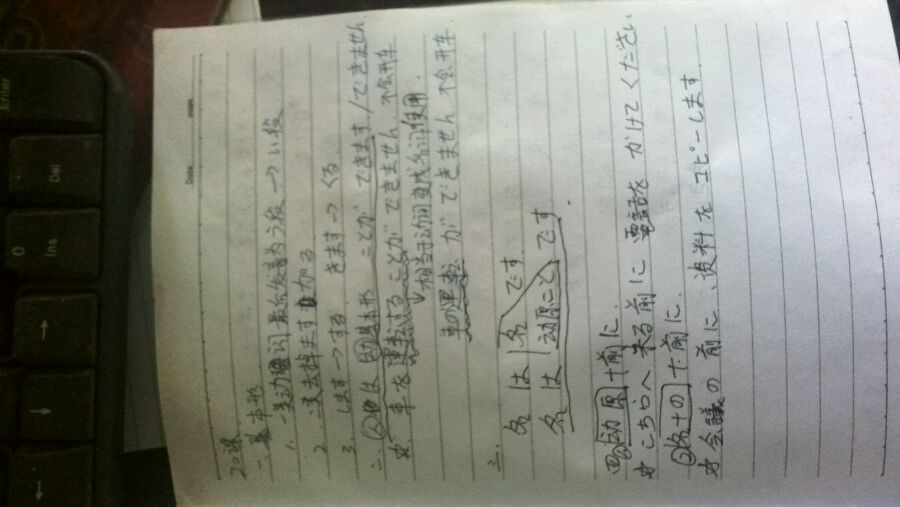 20课
一.基本形
1. 一类动词 最后发音为う段 → い段
2. 二 去掉ます加る
3. します→する きます→くる
二. 人は 动基本形 ことが できます/できません
☆ 车を運転することが できません 不会开车
相当于动词变成名词使用
車の運転 が できません 不会开车
三.
名 は 名 です
名 は 动原こと です.
四. ① 动原+前に.
☆ こちらへ 来る前に 電話を かけて ください
② 名+の+前に.
☆ 会議の 前に、資料を コピーします
Date
Enter
Del
0
Ins
→
↓
←